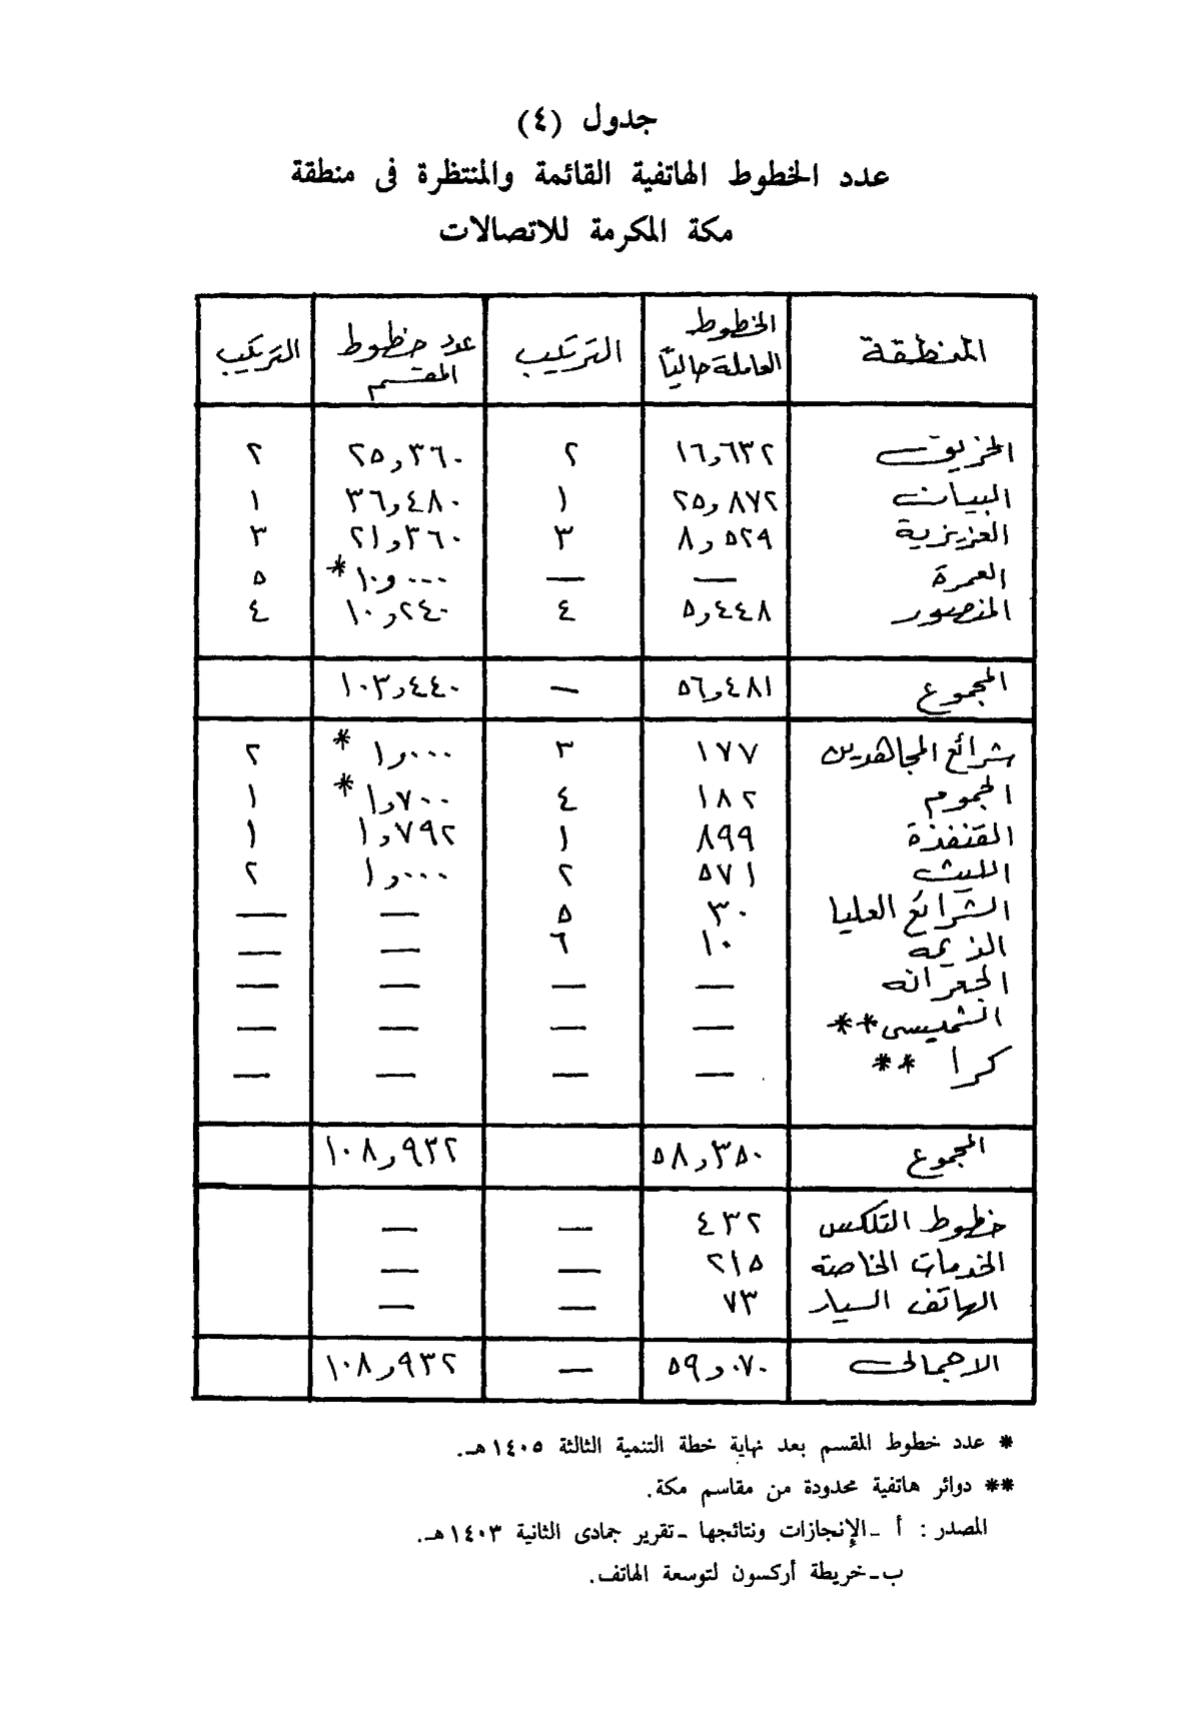 جدول (٤)
عدد الخطوط الهاتفية القائمة والمنتظرة فى منطقة
مكة المكرمة للاتصالات
المنطقة الخطوط العاملة حالياً التركيب عدد خطوط المقسم التركيب
الخريق ١٦,٦٣٢ ٢ ٢٥,٣٦٠ ٢
البيبان ٢٥,٨٧٢ ١ ٣٦,٤٨٠ ١
العزيزية ٨,٥٢٩ ٣ ٢١,٣٦٠ ٣
العمرة — — ١٠,٠٠٠* ٥
المنصور ٥,٤٤٨ ٤ ١٠,٢٤٠ ٤
المجموع ٥٦,٤٨١ — ١٠٣,٤٤٠
شرائع المجاهدين ١٧٧ ٣ ١,٠٠٠* ٢
الجموم ١٨٢ ٤ ١,٧٠٠* ١
القنفذة ٨٩٩ ١ ١,٧٩٢ ١
الليث ٥٧١ ٢ ١,٠٠٠ ٢
الشرائع العليا ٣٠ ٥ — —
الذيمه ١٠ ٦ — —
الجعرانه — — — —
الشميسى** — — — —
كرا ** — — — —
المجموع ٥٨,٣٥٠ ١٠٨,٩٣٢
خطوط التلكس ٤٣٢ — —
الخدمات الخاصة ٢١٥ — —
الهاتف السيار ٧٣ — —
الاجمالى ٥٩,٠٧٠ — ١٠٨,٩٣٢
* عدد خطوط المقسم بعد نهاية خطة التنمية الثالثة ١٤٠٥هـ.
** دوائر هاتفية محدودة من مقاسم مكة.
المصدر : أ ـ الإنجازات ونتائجها ـ تقرير جمادى الثانية ١٤٠٣هـ.
ب ـ خريطة أركسون لتوسعة الهاتف.